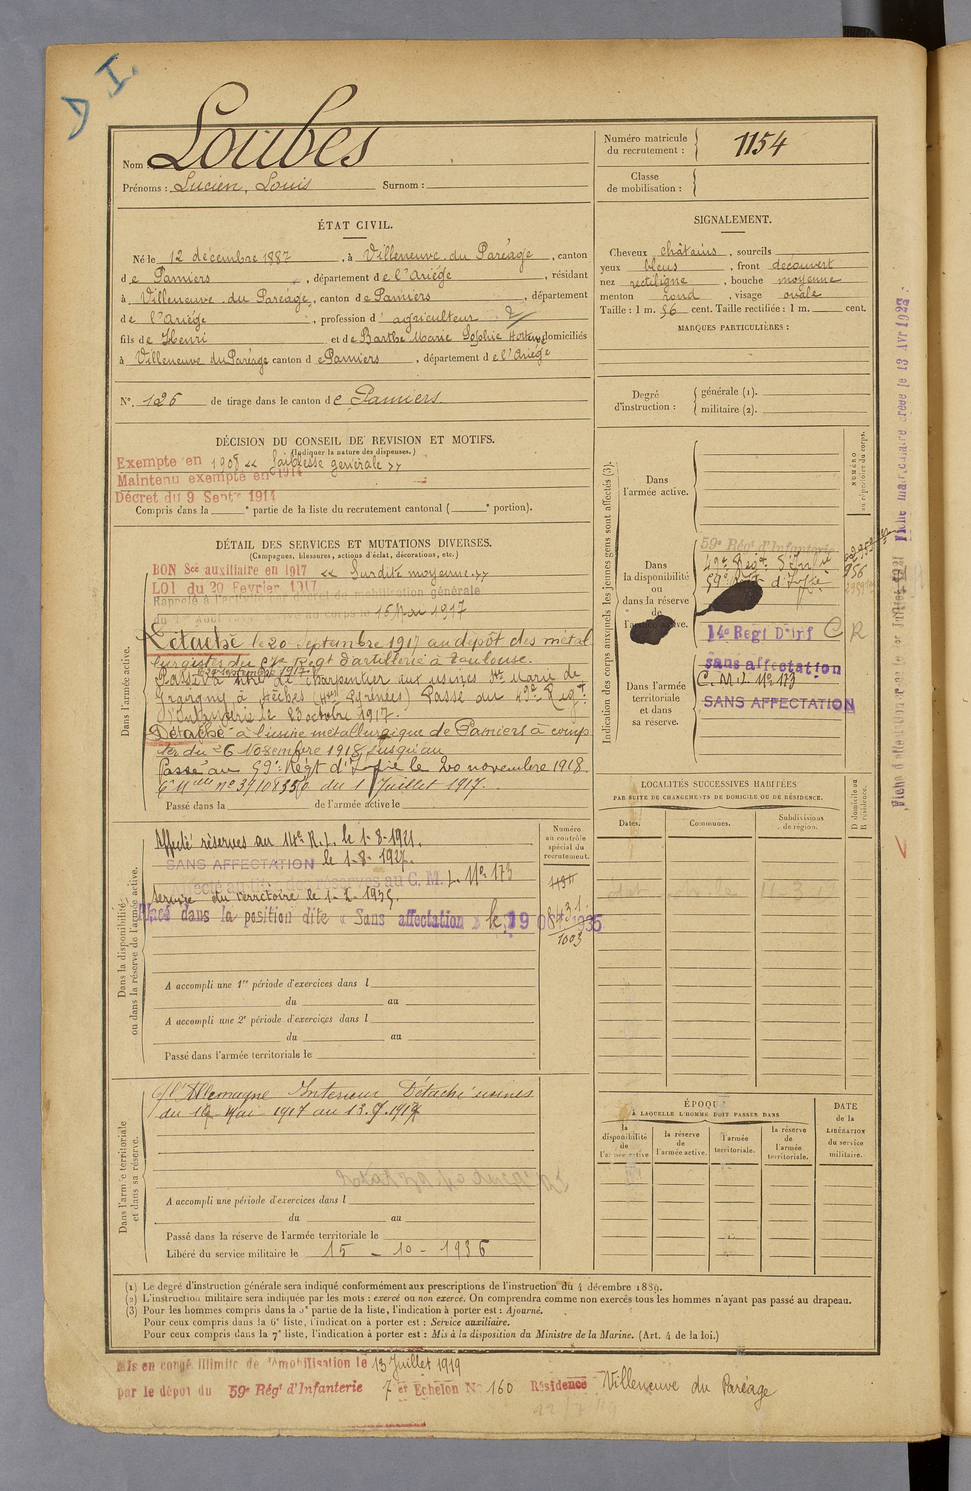 D I.
Nom : Loubes
Prénoms : Lucien, Louis Surnom :
Numéro matricule du recrutement : 1154
Classe de mobilisation :
ÉTAT CIVIL.
Né le 12 décembre 1887, à Villeneuve du Paréage, canton
de Pamiers, département de l'Ariège, résidant
à Villeneuve du Paréage, canton de Pamiers, département
de l'Ariège, profession d'agriculteur
fils de Henri et de Barthe Marie Sophie domiciliés
à Villeneuve du Paréage canton de Pamiers, département de l'Ariège
N°. 126 de tirage dans le canton de Pamiers
SIGNALEMENT.
Cheveux châtains, sourcils
yeux bleus, front découvert
nez rectiligne, bouche moyenne
menton rond, visage ovale
Taille : 1 m. 56 cent. Taille rectifiée : 1 m. cent.
MARQUES PARTICULIÈRES :
Degré d'instruction : générale (1). militaire (2).
DÉCISION DU CONSEIL DE REVISION ET MOTIFS.
(Indiquer la nature des dispenses.)
Exempté en 1908 « faiblesse générale »
Maintenu exempté en 1914
Décret du 9 Sept 1914
Compris dans la e partie de la liste du recrutement cantonal ( e portion).
DÉTAIL DES SERVICES ET MUTATIONS DIVERSES.
(Campagnes, blessures, actions d'éclat, décorations, etc.)
BON Sce auxiliaire en 1917 « Surdité moyenne »
LOI du 20 Fevrier 1917
15 Mai 1917
Détaché le 20 Septembre 1917 au dépôt des métal
lurgistes du Régt d'artillerie à Toulouse.
charpentier aux usines Ste Marie de
à Hèches (Htes Pyrénées) Passé au 49e Régt
d'Infanterie le 23 octobre 1917.
Détaché à l'usine métallurgique de Pamiers à comp
ter du 26 Novembre 1918 jusqu'au
Passé au 59e Régt d'Infie le 20 novembre 1918
du 1 Juillet 1917.
Passé dans la de l'armée active le
Dans l'armée active.
Affecté réserves au 14e R.I. le 1-8-1921.
SANS AFFECTATION le 1-8-1927.
C. M. I. No 173
Service du territoire le
Placé dans la position dite « Sans affectation » le 19 oct 1935
Numéro au contrôle spécial du recrutement.
1003
Dans la disponibilité ou dans la réserve de l'armée active.
A accompli une 1re période d'exercices dans l
du au
A accompli une 2e période d'exercices dans l
du au
Passé dans l'armée territoriale le
C/ l'Allemagne Intérieur Détaché usines
Dans l'armée territoriale et dans sa réserve.
A accompli une période d'exercices dans l
du au
Passé dans la réserve de l'armée territoriale le
Libéré du service militaire le 15 - 10 - 1936
Indication des corps auxquels les jeunes gens sont affectés (3).
NUMÉRO au répertoire du corps.
Dans l'armée active.
Dans la disponibilité ou dans la réserve de l'armée active.
59e Régt d'Infanterie
49e Régt d'Infie
59e Régt d'Infie
956
14e Regt D'Inf C R
Dans l'armée territoriale et dans sa réserve.
sans affectation
C. M. I. No 173
SANS AFFECTATION
LOCALITÉS SUCCESSIVES HABITÉES
PAR SUITE DE CHANGEMENTS DE DOMICILE OU DE RÉSIDENCE.
Dates. Communes. Subdivisions de région. D domicile ou R résidence.
ÉPOQUE
À LAQUELLE L'HOMME DOIT PASSER DANS
la disponibilité de l'armée active
la réserve de l'armée active.
l'armée territoriale.
la réserve de l'armée territoriale.
DATE de la LIBÉRATION du service militaire.
(1) Le degré d'instruction générale sera indiqué conformément aux prescriptions de l'instruction du 4 décembre 1889.
(2) L'instruction militaire sera indiquée par les mots : exercé ou non exercé. On comprendra comme non exercés tous les hommes n'ayant pas passé au drapeau.
(3) Pour les hommes compris dans la 5e partie de la liste, l'indication à porter est : Ajourné.
Pour ceux compris dans la 6e liste, l'indication à porter est : Service auxiliaire.
Pour ceux compris dans la 7e liste, l'indication à porter est : Mis à la disposition du Ministre de la Marine. (Art. 4 de la loi.)
Mis en congé illimité de démobilisation le 13 Juillet 1919
par le dépôt du 59e Régt d'Infanterie 7 et Echelon No 160 Résidence Villeneuve du Paréage